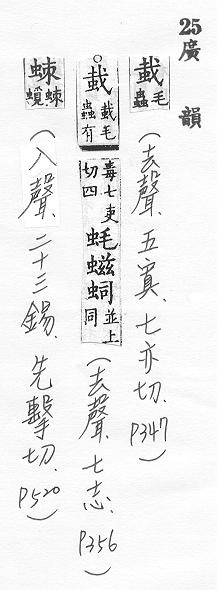 25廣韻
蛓毛蟲
(去聲.五寘.七亦切.P347)
○蛓蛓毛蟲有毒七吏切四蚝螆並上同
(去聲.七志.P356)
(入聲.二十三錫.先擊切.P520)